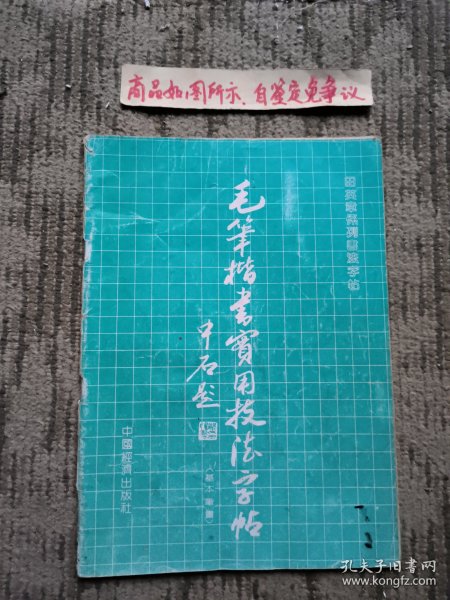 商品如图所示、自鉴定免争议
田英章系列書法字帖
毛筆楷書實用技法字帖
中石题
（基本筆畫）
中國經濟出版社
孔夫子旧书网
www.kongfz.com